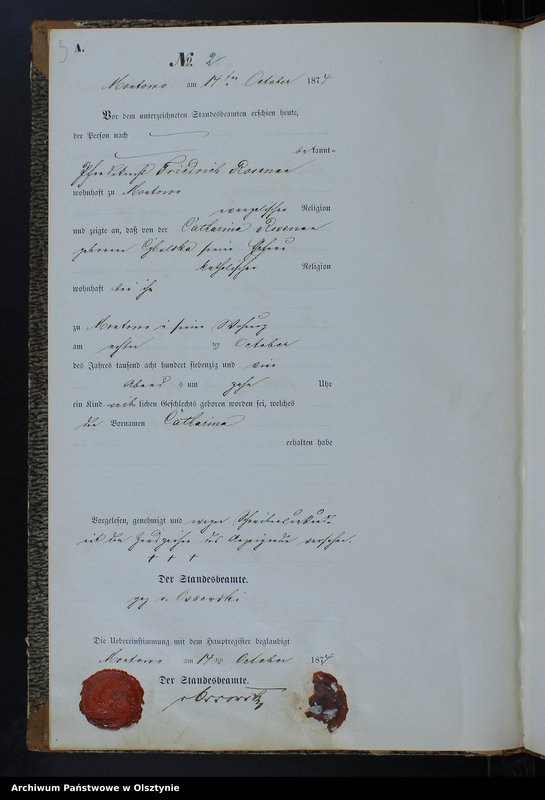 A.
No. 2
Montowo am 14ten October 1874
Vor dem unterzeichneten Standesbeamten erschien heute,
der Person nach
bekannt
Friedrich Rosenau
wohnhaft zu Montowo
evangelischer Religion
und zeigte an, daß von der Catharina Rosenau
geborene seiner Ehefrau
katholischer Religion
wohnhaft bei ihm
zu Montowo in seiner Wohnung
am achten ten October
des Jahres tausend acht hundert siebenzig und vier
Abends um zehn Uhr
ein Kind weiblichen Geschlechts geboren worden sei, welches
die Vornamen Catharina
erhalten habe
Vorgelesen, genehmigt und wegen
mit den Handzeichen des Anzeigenden versehen.
+ + +
Der Standesbeamte.
gez v. Ossowski
Die Uebereinstimmung mit dem Hauptregister beglaubigt
Montowo am 14 ten October 1874
Der Standesbeamte.
v Ossowski
Archiwum Państwowe w Olsztynie